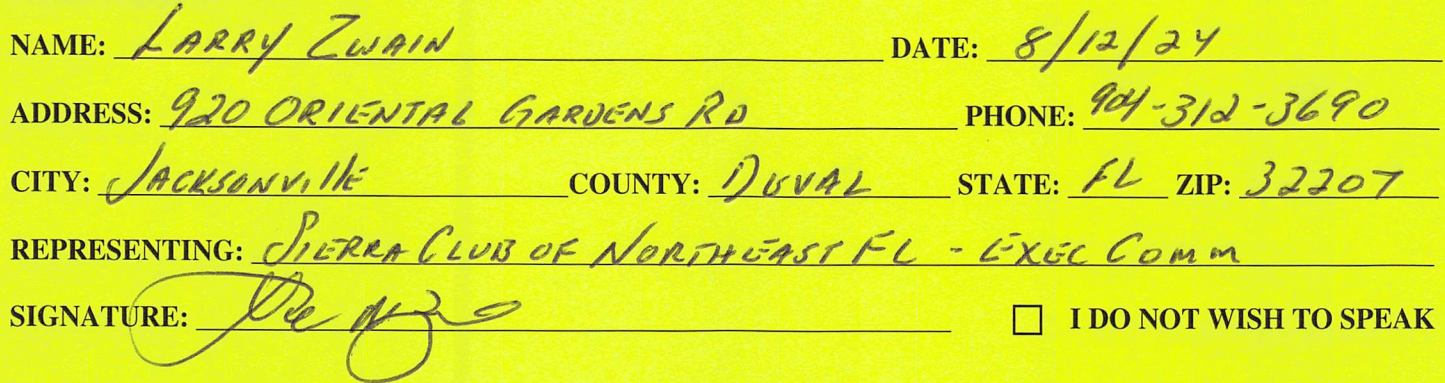 NAME: LARRY ZWAIN DATE: 8/12/24
ADDRESS: 920 ORIENTAL GARDENS RD PHONE: 904-312-3690
CITY: JACKSONVIllE COUNTY: DUVAL STATE: FL ZIP: 32207
REPRESENTING: SIERRA CLUB OF NORTHEAST FL - EXEC COMM
SIGNATURE: I DO NOT WISH TO SPEAK